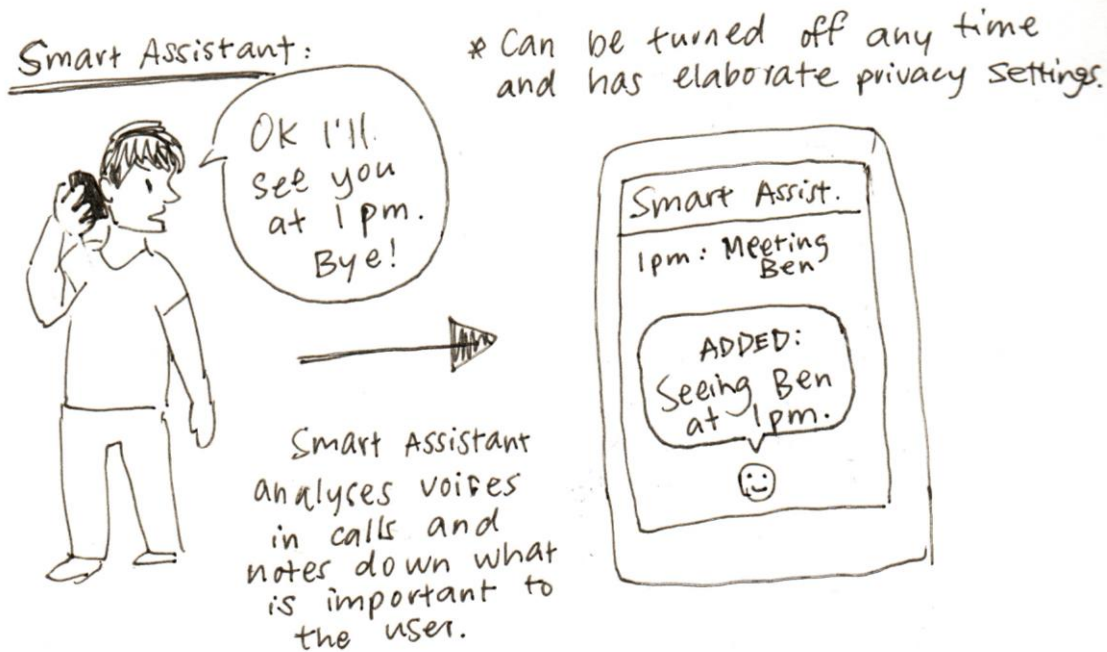 Smart Assistant:
* Can be turned off any time
and has elaborate privacy settings.
OK I'll
see you
at 1pm.
Bye!
Smart Assistant
analyses voices
in calls and
notes down what
is important to
the user.
Smart Assist.
1pm: Meeting
Ben
ADDED:
Seeing Ben
at 1pm.